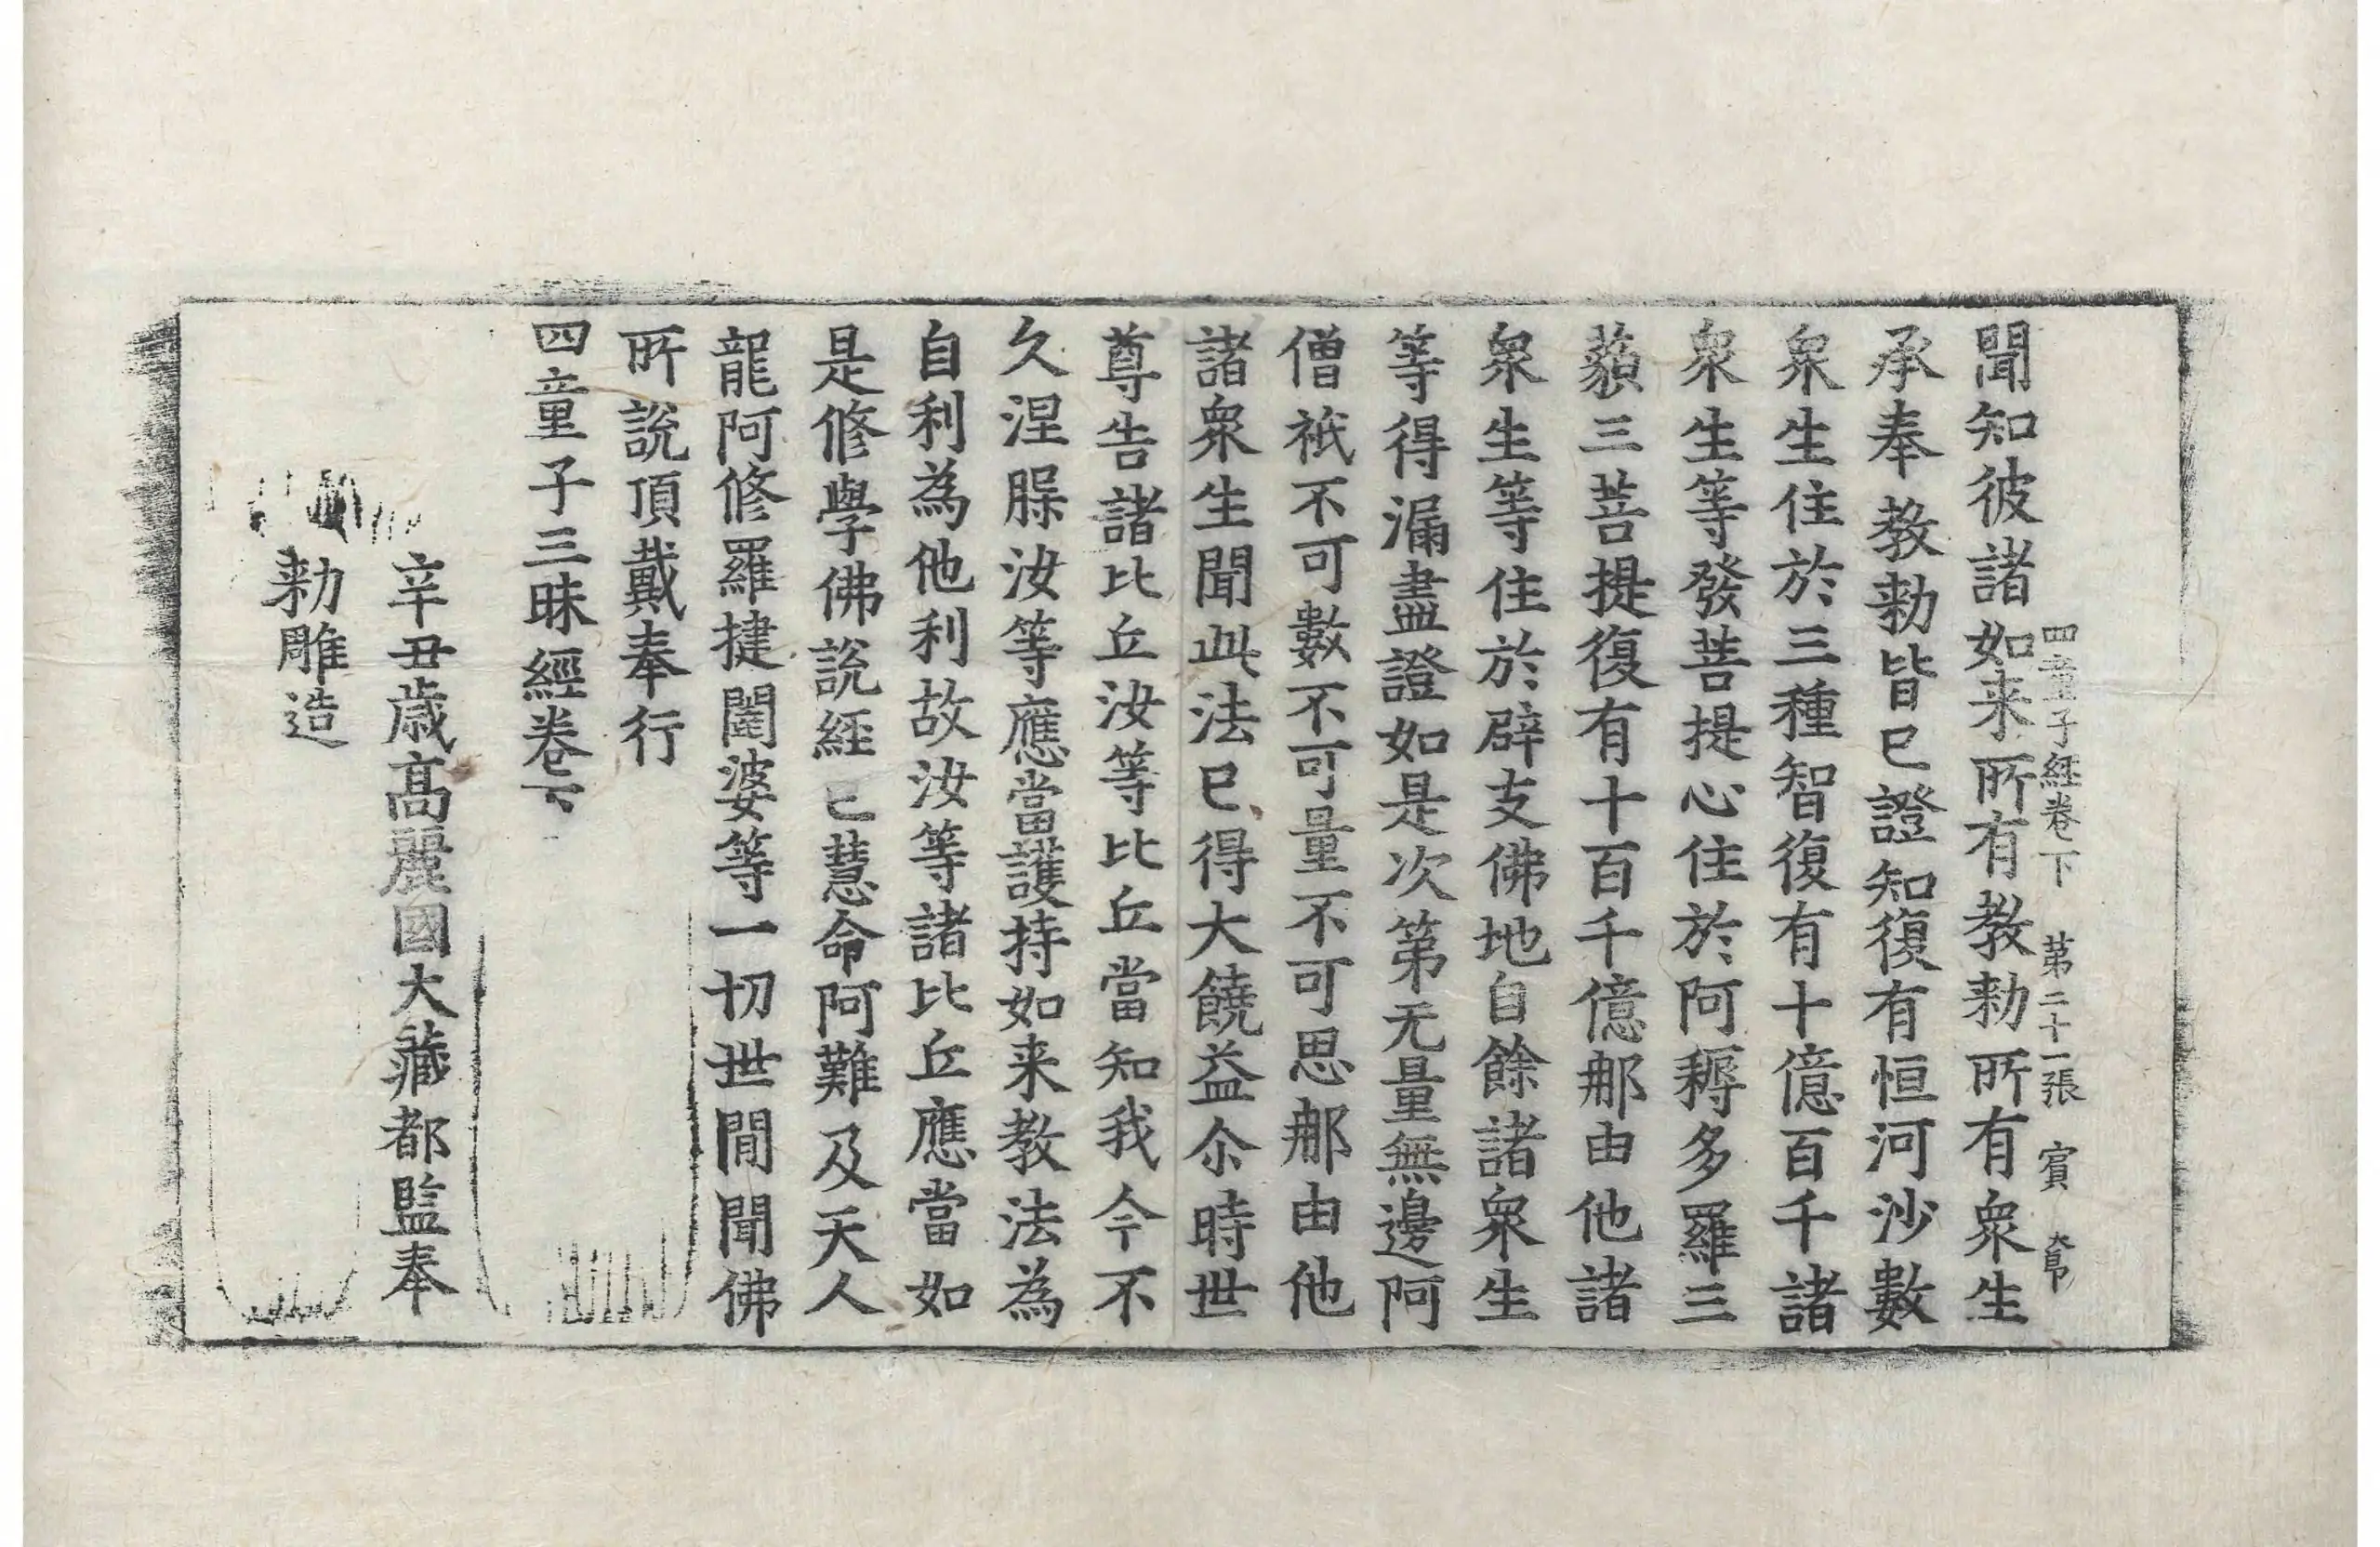 四童子經卷下 第二十一張 賔
聞知彼諸如来所有教勑所有衆生
承奉教勑皆已證知復有恒河沙數
衆生住於三種智復有十億百千諸
衆生等發菩提心住於阿耨多羅三
藐三菩提復有十百千億那由他諸
衆生等住於辟支佛地自餘諸衆生
等得漏盡證如是次第无量無邊阿
僧祇不可數不可量不可思那由他
諸衆生聞此法已得大饒益尒時世
尊告諸比丘汝等比丘當知我今不
久涅槃汝等應當護持如来教法為
自利為他利故汝等諸比丘應當如
是修學佛說經已慧命阿難及天人
龍阿修羅揵闥婆等一切世間聞佛
所說頂戴奉行
四童子三昧經卷下
辛丑歲高麗國大藏都監奉
勑雕造